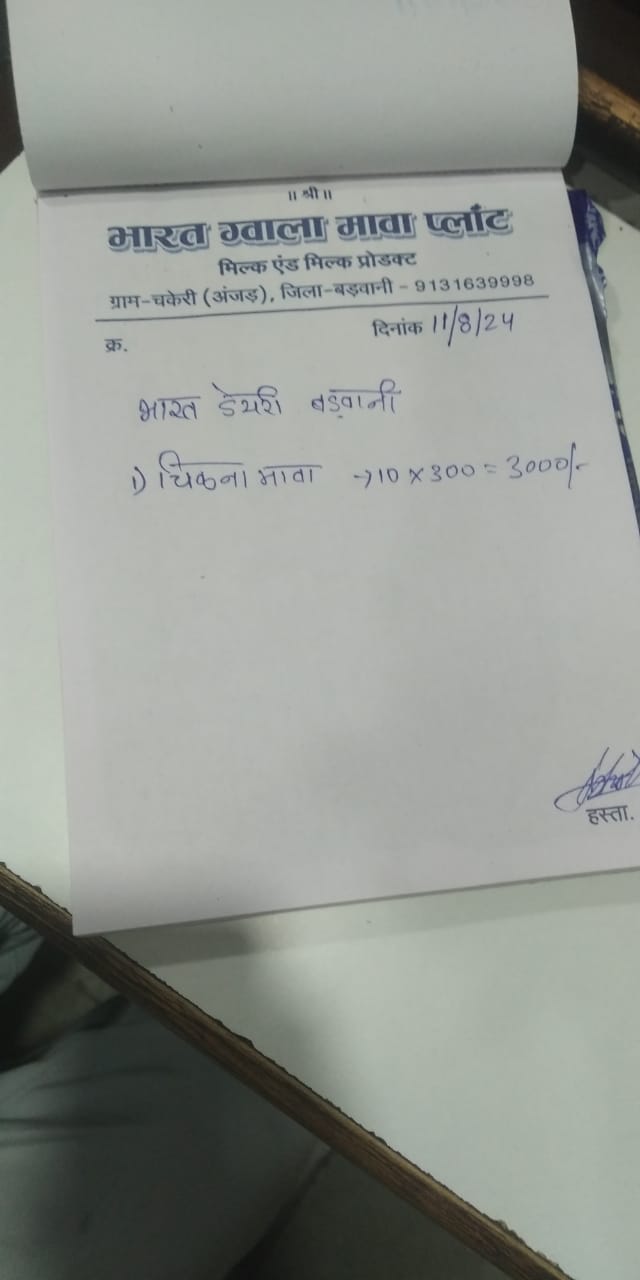 ॥ श्री ॥
भारत ग्वाला मावा प्लांट
मिल्क एंड मिल्क प्रोडक्ट
ग्राम-चकेरी (अंजड़), जिला-बड़वानी - 9131639998
क्र. दिनांक 11/8/24
भारत डेयरी बड़वानी
1) चिकना मावा → 10 × 300 = 3000/-
हस्ता.